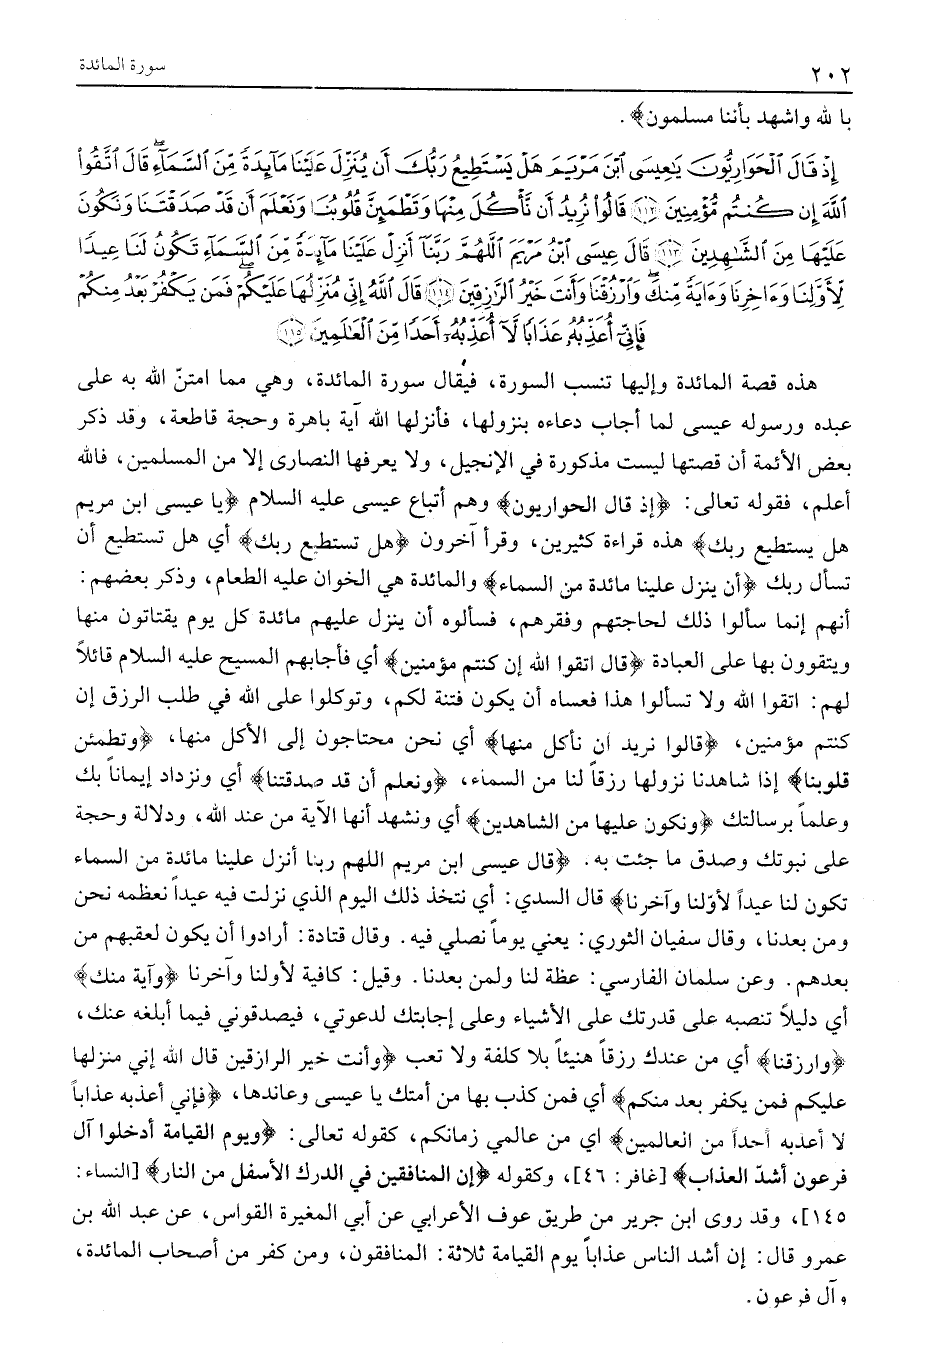 ٢٠٢ سورة المائدة
بالله واشهد بأننا مسلمون﴾.
إِذْ قَالَ الْحَوَارِيُّونَ يَٰعِيسَى ابْنَ مَرْيَمَ هَلْ يَسْتَطِيعُ رَبُّكَ أَن يُنَزِّلَ عَلَيْنَا مَآئِدَةً مِّنَ السَّمَآءِ ۖ قَالَ اتَّقُوا
اللَّهَ إِن كُنتُم مُّؤْمِنِينَ ﴿١١٢﴾ قَالُوا نُرِيدُ أَن نَّأْكُلَ مِنْهَا وَتَطْمَئِنَّ قُلُوبُنَا وَنَعْلَمَ أَن قَدْ صَدَقْتَنَا وَنَكُونَ
عَلَيْهَا مِنَ الشَّٰهِدِينَ ﴿١١٣﴾ قَالَ عِيسَى ابْنُ مَرْيَمَ اللَّهُمَّ رَبَّنَآ أَنزِلْ عَلَيْنَا مَآئِدَةً مِّنَ السَّمَآءِ تَكُونُ لَنَا عِيدًا
لِّأَوَّلِنَا وَءَاخِرِنَا وَءَايَةً مِّنكَ ۖ وَارْزُقْنَا وَأَنتَ خَيْرُ الرَّٰزِقِينَ ﴿١١٤﴾ قَالَ اللَّهُ إِنِّي مُنَزِّلُهَا عَلَيْكُمْ ۖ فَمَن يَكْفُرْ بَعْدُ مِنكُمْ
فَإِنِّي أُعَذِّبُهُ عَذَابًا لَّآ أُعَذِّبُهُ أَحَدًا مِّنَ الْعَٰلَمِينَ ﴿١١٥﴾
هذه قصة المائدة وإليها تنسب السورة، فيقال سورة المائدة، وهي مما امتنّ الله به على
عبده ورسوله عيسى لما أجاب دعاءه بنزولها، فأنزلها الله آية باهرة وحجة قاطعة، وقد ذكر
بعض الأئمة أن قصتها ليست مذكورة في الإنجيل، ولا يعرفها النصارى إلا من المسلمين، فالله
أعلم، فقوله تعالى: ﴿إذ قال الحواريون﴾ وهم أتباع عيسى عليه السلام ﴿يا عيسى ابن مريم
هل يستطيع ربك﴾ هذه قراءة كثيرين، وقرأ آخرون ﴿هل تستطيع ربك﴾ أي هل تستطيع أن
تسأل ربك ﴿أن ينزل علينا مائدة من السماء﴾ والمائدة هي الخوان عليه الطعام، وذكر بعضهم:
أنهم إنما سألوا ذلك لحاجتهم وفقرهم، فسألوه أن ينزل عليهم مائدة كل يوم يقتاتون منها
ويتقوون بها على العبادة ﴿قال اتقوا الله إن كنتم مؤمنين﴾ أي فأجابهم المسيح عليه السلام قائلاً
لهم: اتقوا الله ولا تسألوا هذا فعساه أن يكون فتنة لكم، وتوكلوا على الله في طلب الرزق إن
كنتم مؤمنين، ﴿قالوا نريد ان نأكل منها﴾ أي نحن محتاجون إلى الأكل منها، ﴿وتطمئن
قلوبنا﴾ إذا شاهدنا نزولها رزقاً لنا من السماء، ﴿ونعلم أن قد صدقتنا﴾ أي ونزداد إيماناً بك
وعلماً برسالتك ﴿ونكون عليها من الشاهدين﴾ أي ونشهد أنها الآية من عند الله، ودلالة وحجة
على نبوتك وصدق ما جئت به. ﴿قال عيسى ابن مريم اللهم ربنا أنزل علينا مائدة من السماء
تكون لنا عيداً لأوّلنا وآخرنا﴾ قال السدي: أي نتخذ ذلك اليوم الذي نزلت فيه عيداً نعظمه نحن
ومن بعدنا، وقال سفيان الثوري: يعني يوماً نصلي فيه. وقال قتادة: أرادوا أن يكون لعقبهم من
بعدهم. وعن سلمان الفارسي: عظة لنا ولمن بعدنا. وقيل: كافية لأولنا وآخرنا ﴿وآية منك﴾
أي دليلاً تنصبه على قدرتك على الأشياء وعلى إجابتك لدعوتي، فيصدقوني فيما أبلغه عنك،
﴿وارزقنا﴾ أي من عندك رزقاً هنيئاً بلا كلفة ولا تعب ﴿وأنت خير الرازقين قال الله إني منزلها
عليكم فمن يكفر بعد منكم﴾ أي فمن كذب بها من أمتك يا عيسى وعاندها، ﴿فإني أعذبه عذاباً
لا أعذبه أحداً من العالمين﴾ اي من عالمي زمانكم، كقوله تعالى: ﴿ويوم القيامة أدخلوا آل
فرعون أشدّ العذاب﴾ [غافر: ٤٦]، وكقوله ﴿إن المنافقين في الدرك الأسفل من النار﴾ [النساء:
١٤٥]، وقد روى ابن جرير من طريق عوف الأعرابي عن أبي المغيرة القواس، عن عبد الله بن
عمرو قال: إن أشد الناس عذاباً يوم القيامة ثلاثة: المنافقون، ومن كفر من أصحاب المائدة،
وآل فرعون.